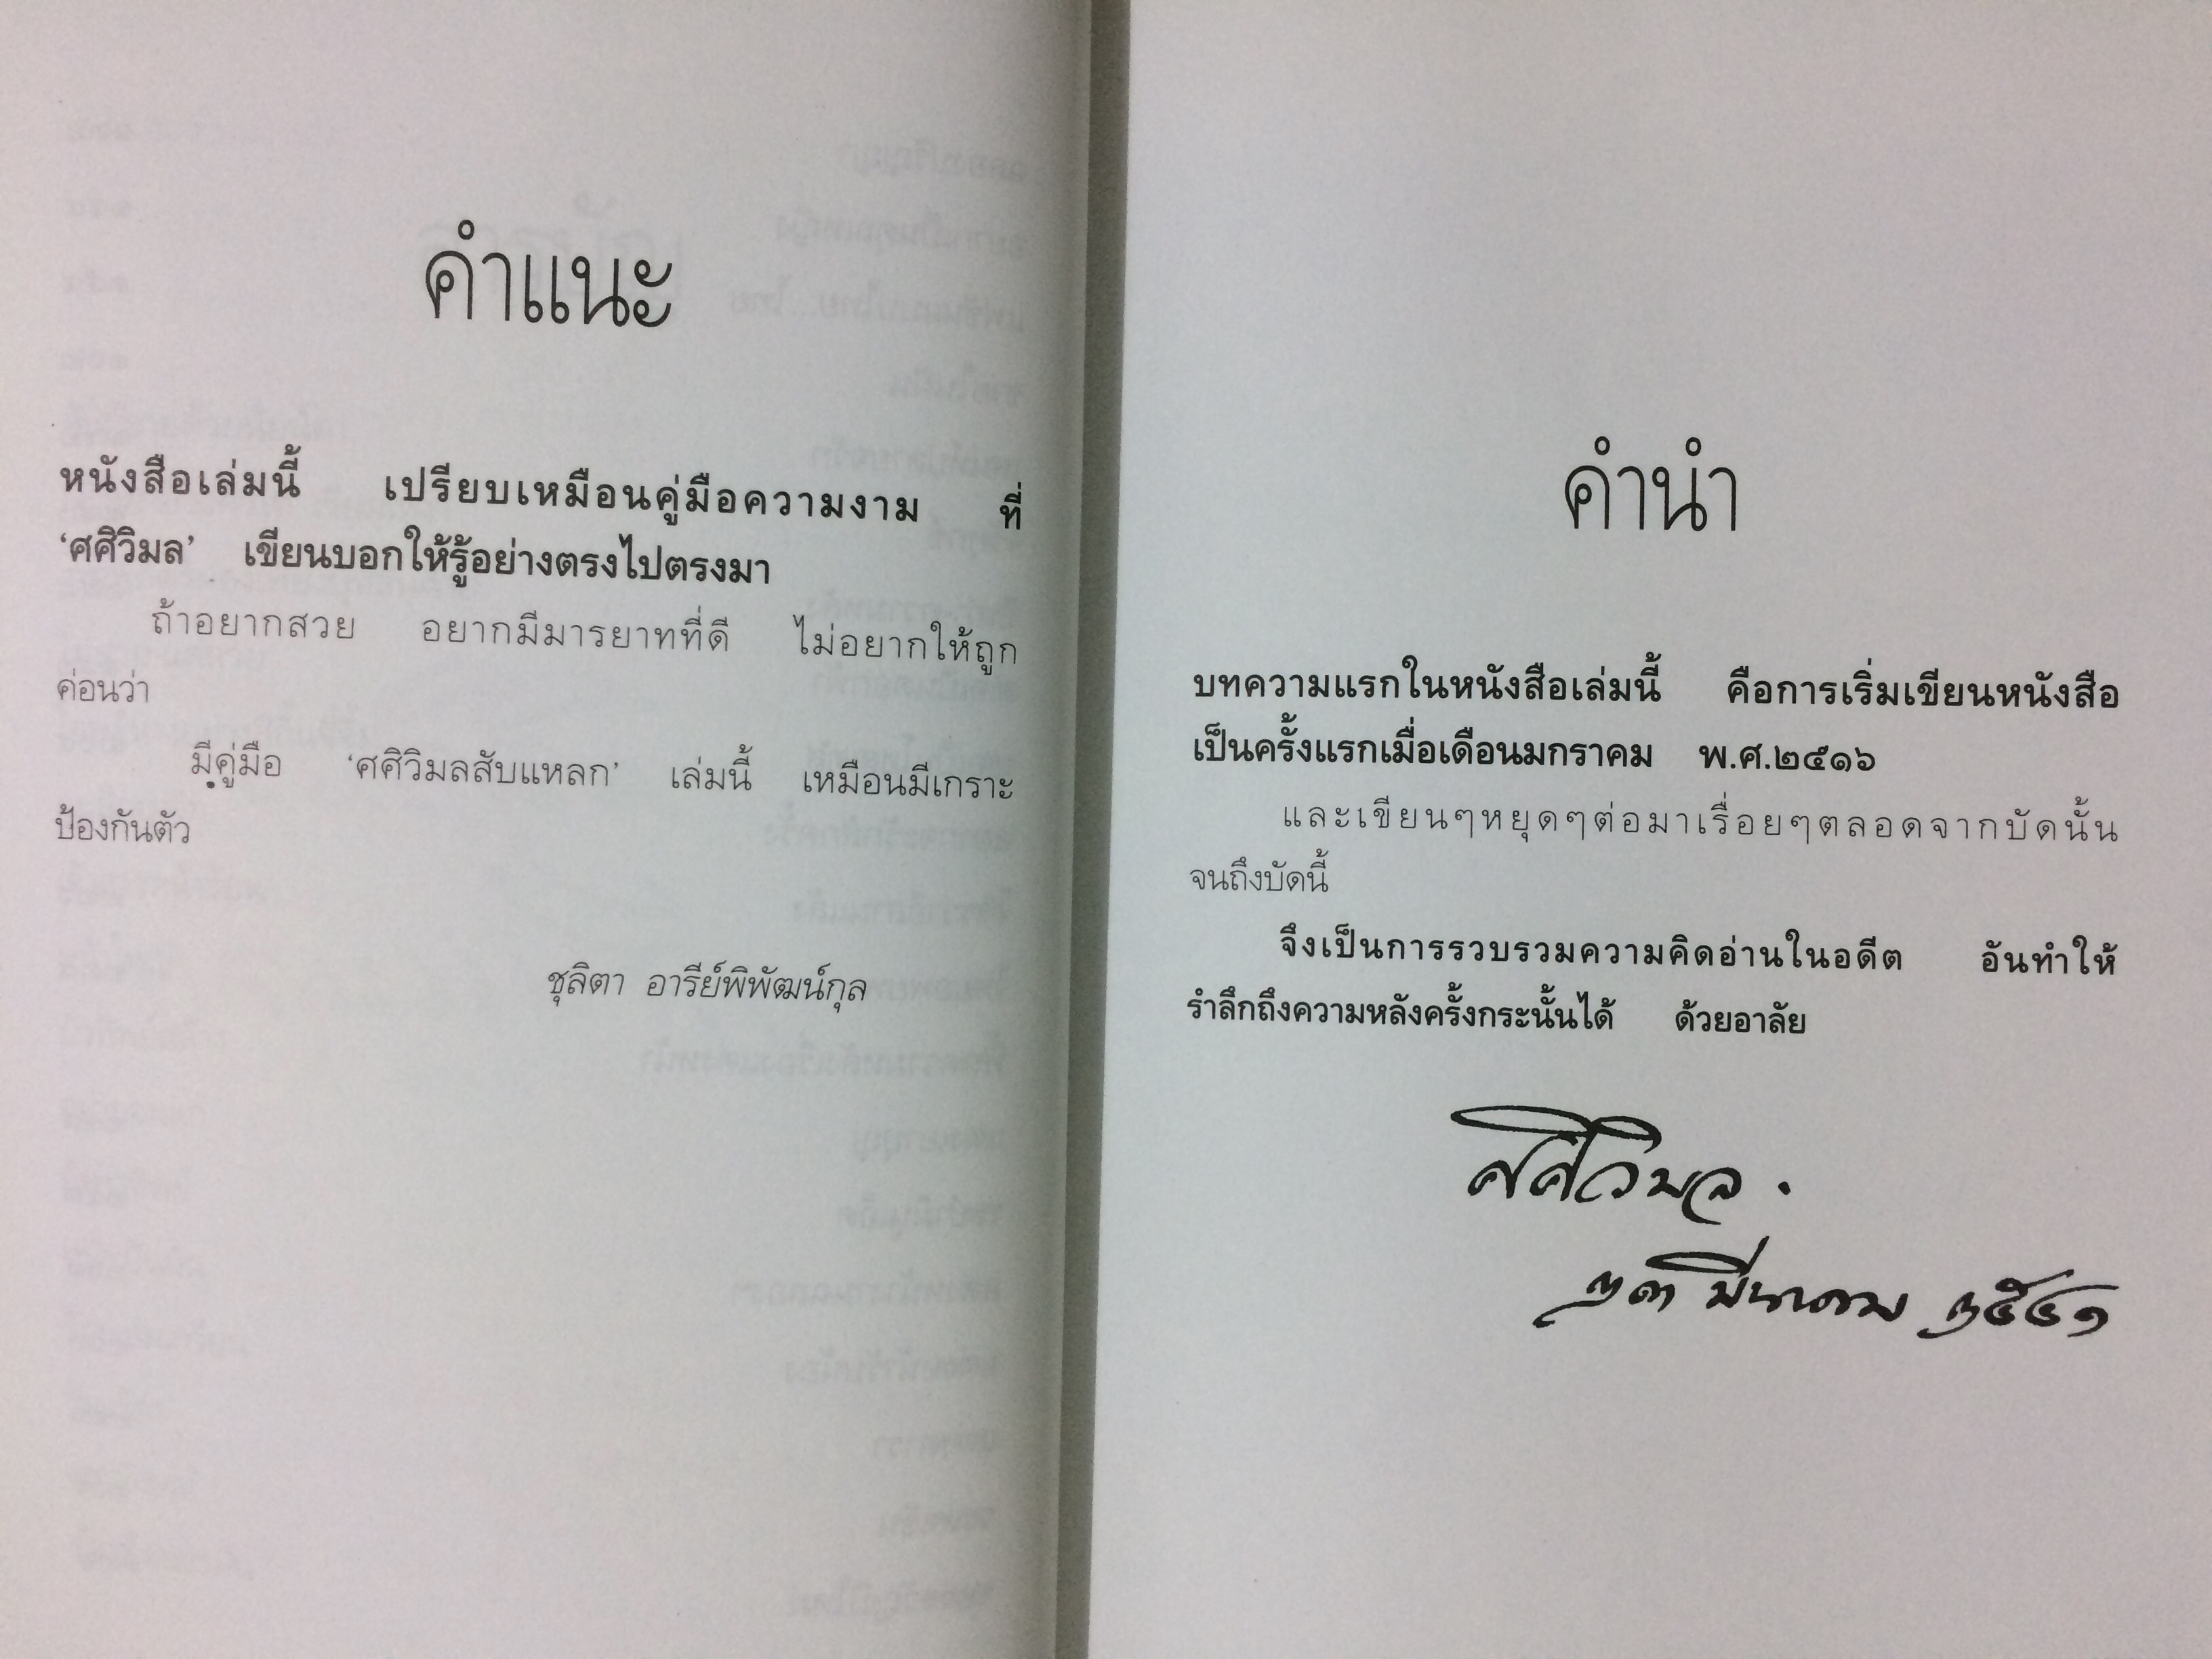 คำแนะ
หนังสือเล่มนี้ เปรียบเหมือนคู่มือความงาม ที่
‘ศศิวิมล’ เขียนบอกให้รู้อย่างตรงไปตรงมา
ถ้าอยากสวย อยากมีมารยาทที่ดี ไม่อยากให้ถูก
ค่อนว่า
มีคู่มือ ‘ศศิวิมลสับแหลก’ เล่มนี้ เหมือนมีเกราะ
ป้องกันตัว
ชุลิตา อารีย์พิพัฒน์กุล
คำนำ
บทความแรกในหนังสือเล่มนี้ คือการเริ่มเขียนหนังสือ
เป็นครั้งแรกเมื่อเดือนมกราคม พ.ศ.๒๕๑๖
และเขียนๆหยุดๆต่อมาเรื่อยๆตลอดจากบัดนั้น
จนถึงบัดนี้
จึงเป็นการรวบรวมความคิดอ่านในอดีต อันทำให้
รำลึกถึงความหลังครั้งกระนั้นได้ ด้วยอาลัย
ศศิวิมล.
๒๓ มีนาคม ๒๕๔๑